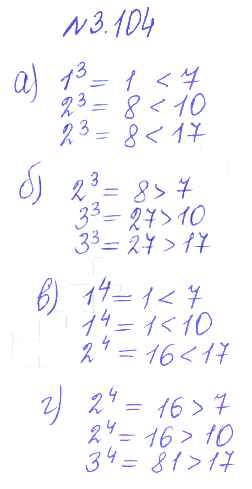 №3.104
а) 1³ = 1 < 7
2³ = 8 < 10
2³ = 8 < 17
б) 2³ = 8 > 7
3³ = 27 > 10
3³ = 27 > 17
в) 1⁴ = 1 < 7
1⁴ = 1 < 10
2⁴ = 16 < 17
г) 2⁴ = 16 > 7
2⁴ = 16 > 10
3⁴ = 81 > 17